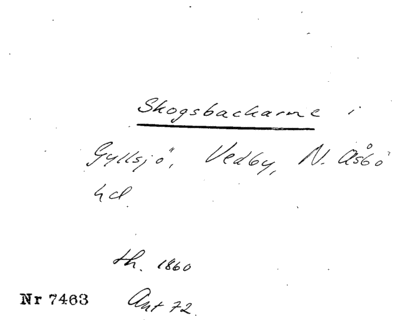 Skogsbackarne i
Gyllsjö, Vedby, N. Åsbo
hd.
th. 1860
Nr 7463 Ant 72.